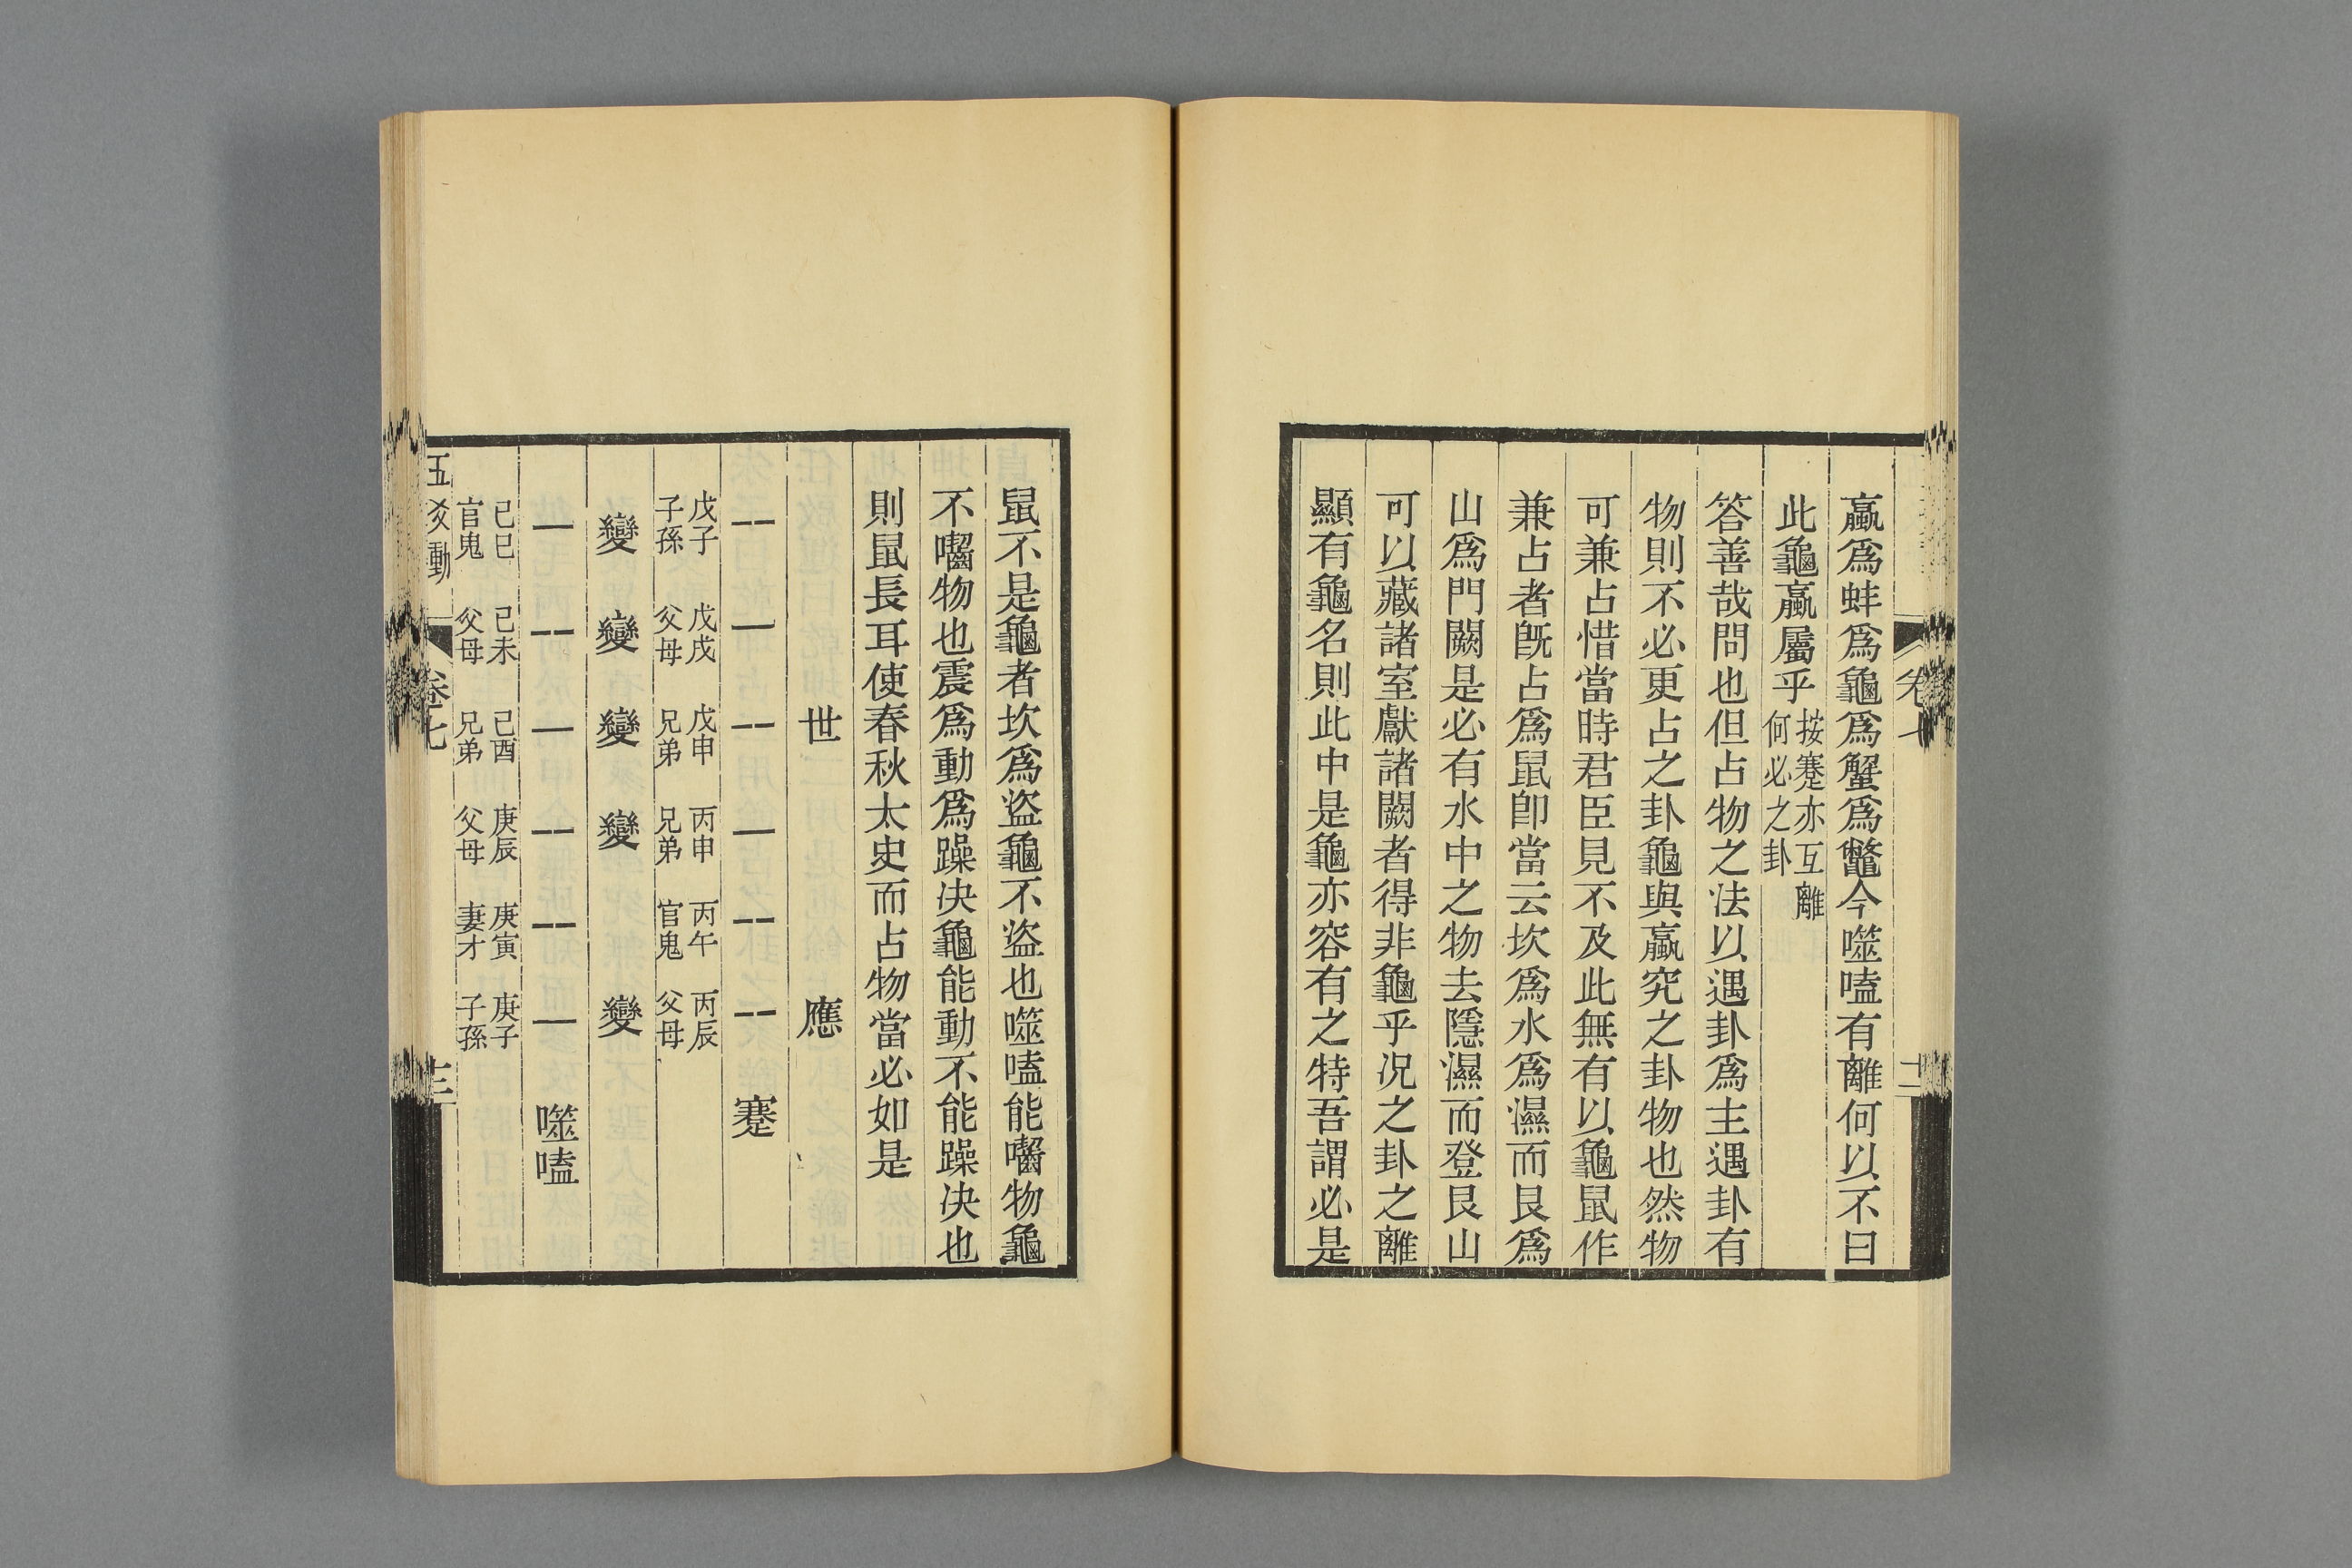 蠃爲蚌爲龜爲蟹爲鼈今噬嗑有離何以不曰
此龜蠃屬乎按蹇亦互離何必之卦
答善哉問也但占物之法以遇卦爲主遇卦有
物則不必更占之卦龜與蠃究之卦物也然物
可兼占惜當時君臣見不及此無有以龜鼠作
兼占者旣占爲鼠卽當云坎爲水爲濕而艮爲
山爲門闕是必有水中之物去隱濕而登艮山
可以藏諸室獻諸闕者得非龜乎況之卦之離
顯有龜名則此中是龜亦容有之特吾謂必是
卷七
十二
鼠不是龜者坎爲盜龜不盜也噬嗑能嚙物龜
不嚙物也震爲動爲躁决龜能動不能躁决也
則鼠長耳使春秋太史而占物當必如是
世 應
蹇
戊子 戊戌 戊申 丙申 丙午 丙辰
子孫 父母 兄弟 兄弟 官鬼 父母
變 變 變 變 變
噬嗑
己巳 己未 己酉 庚辰 庚寅 庚子
官鬼 父母 兄弟 父母 妻才 子孫
五爻動
卷七
十三